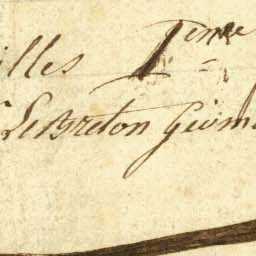 illes 1eme
LeBreton Geom